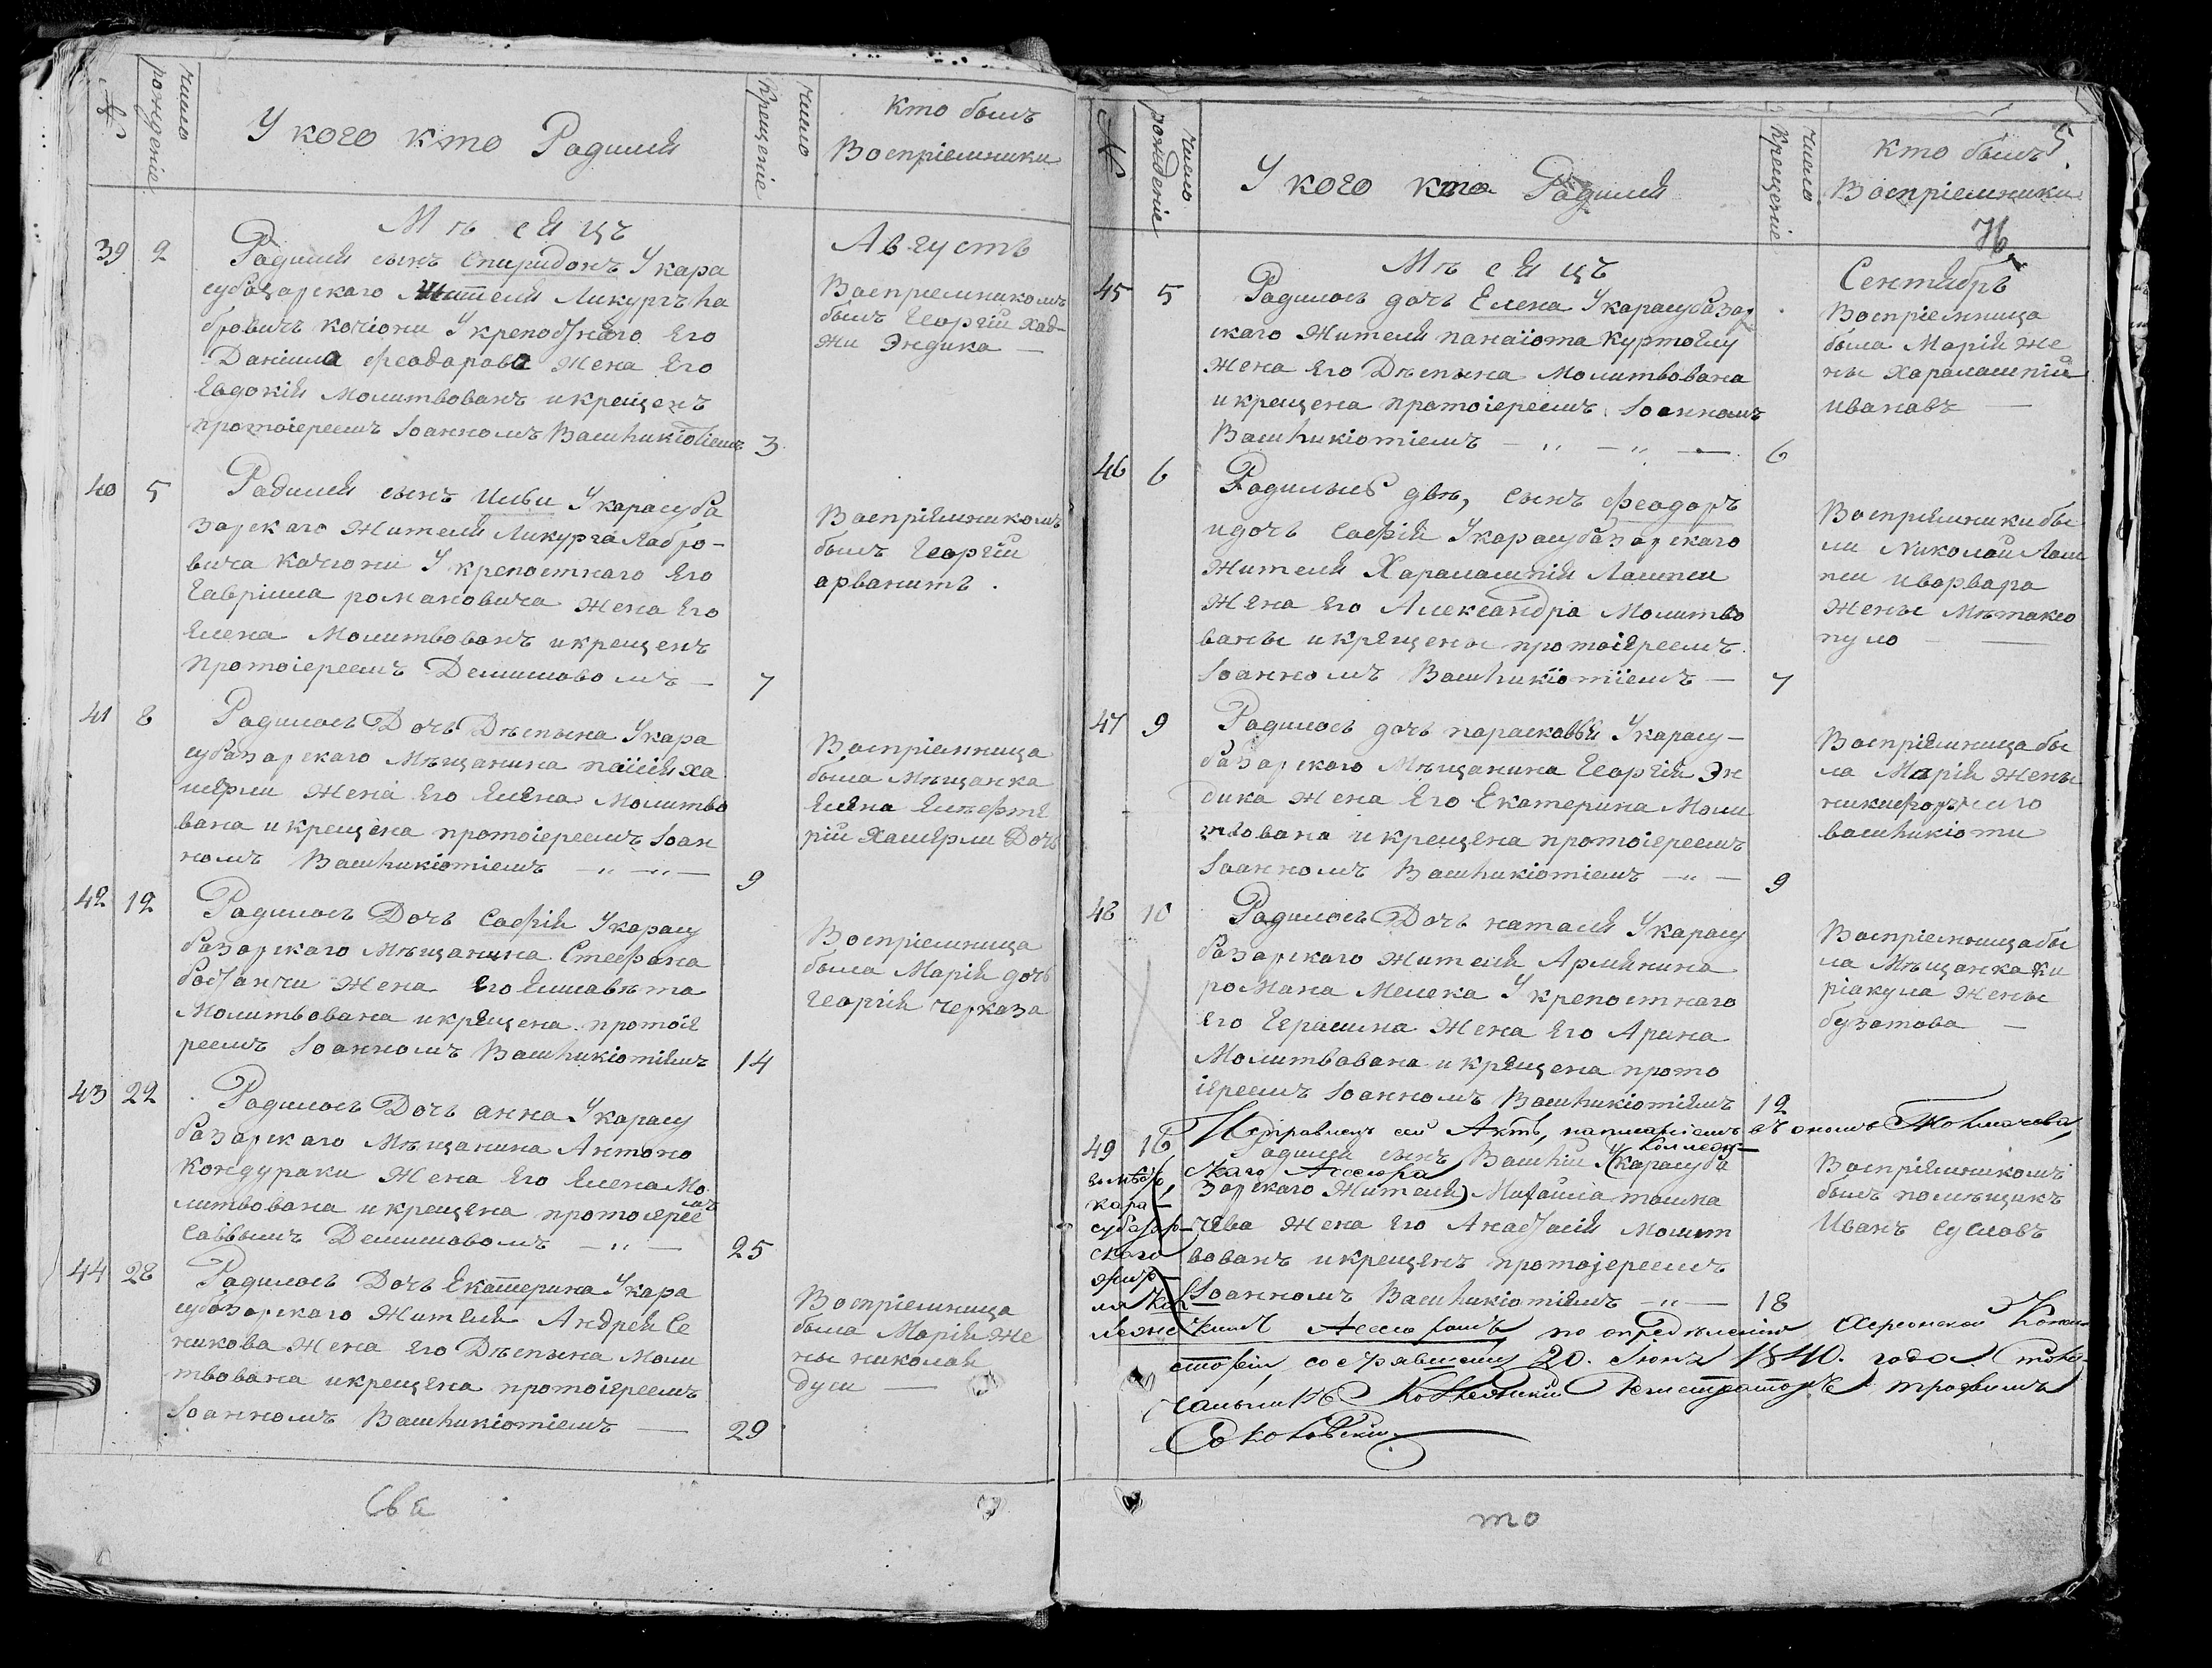 №
число рожденіе
У кого кто Родился
число Крещеніе
Кто былъ
Воспріемники
Мѣсяцъ
Августъ
39 2
Родился сынъ Спиридонъ У кара
субазарскаго Жителя Ликургъ ла
бровичъ качіони У крепостнаго Его
Даніила феодарова жена Его
Евдокія Молитвованъ икрещенъ
протоіереемъ Іоанномъ Вашһикіотіемъ 3
Воспріемникомъ
былъ Георгій хад-
жи Эндика —
40 5
Родился сынъ илви У карасуба
зарскаго Жителя Ликурга Лабро-
вича Качіони У крепостнаго Его
Гавріила романовича жена Его
Елена Молитвованъ икрещенъ
Протоіереемъ Демишовомъ — 7
Воспріемникомъ
былъ Георгій
арванитъ .
41 8
Родилась Дочь Дѣспына У кара
субазарскаго Мѣщанина паисія ха
жена Его Елена Молитво
вана икрещена протоіереемъ Іоан
номъ Вашһикіотіемъ — „ — „ — 9
Воспріемница
была Мѣщанка
Елена Елефте
рій Дочь
42 12
Родилась Дочь Софія У карасу
базарскаго Мѣщанина Стефана
бостанчи жена Его Елисавѣта
Молитвована икрещена протоіе
реемъ Іоанномъ Вашһикіотіемъ 14
Воспріемница
была Марія дочь
Георгія черказа
43 22
Родилась Дочь анна У карасу
базарскаго Мѣщанина Антоно
Кондураки Жена Его Елена Мо
литвована икрещена протоіерее
мъ
Саввымъ Демишовомъ — „ — 25
44 28
Родилась Дочь Екатерина У кара
субазарскаго Жителя Андрей Се
никова жена Его Дѣспына Моли
твована икрещена протоіереемъ
Іоанномъ Вашһикіотіемъ — 29
Воспріемница
была Марія же
ны николая
дуси —
Све
5
№
число рожденіе
У кого кто Родился
число Крещеніе
Кто былъ
Воспріемники
Мѣсяцъ
Сентябрь
45 5
Родилась дочь Елена У карасубазар
скаго Жителя панаіота Куртоглу
жена Его Дѣспына Молитвована
икрещена протоіереемъ Іоанномъ
Вашһикіотіемъ — „ — „ — 6
Воспріемница
была Марія же
ны Харалампій
ивановъ —
46 6
Родилысь двѣ, сынъ феодоръ
идочь Софія У карасубазарскаго
Жителя Харалампія Лампси
Жена Его Александра Молитво
ваны икрещены протоіереемъ
Іоанномъ Вашһикіотіемъ — 7
Воспріемники бы
ли Николай Лам
пси иварвара
жены Мѣтаксо
пуло —
47 9
Родилась дочь парасковья У карасу-
базарскаго Мѣщанина Георгій Эн
дика жена Его Екатерина Моли
твована икрещена протоіереемъ
Іоанномъ Вашһикіотіемъ — „ — 9
Воспріемница бы
ла Марія жены
вашһикіоти
48 10
Родилась Дочь наталія У карасу
базарскаго жителя Армянина
романа Мелека У крепостнаго
Его Герасима жена Его Арина
Молитвована икрещена прото
іереемъ Іоанномъ Вашһикіотіемъ 12
Воспріемница бы
ла Мѣщанка Ки
ріакула жены
бузатова —
Исправленъ сей Актъ, написаніемъ въ ономъ Толмачева,
49 16
Родился сынъ Василій У (карасуба
Коллеж-
скаго Асессора
зарскаго Жителя) Михаила толма
чева жена Его Анастасія Молит
вованъ икрещенъ протоіереемъ
Іоанномъ Вашһикіотіемъ — „ — 18
Воспріемникомъ
былъ помѣщикъ
Иванъ Сусловъ
вмѣсто,
кара-
субазар-
скаго
жите-
ля Кол-
лежскимъ Асессоромъ по опредѣленію Херсонской Конси
сторіи, состоявшемуся 20. Іюня 1840. года. Столо-
начальникъ Коллежскій Регистраторъ трофимъ
Соколовскій
то